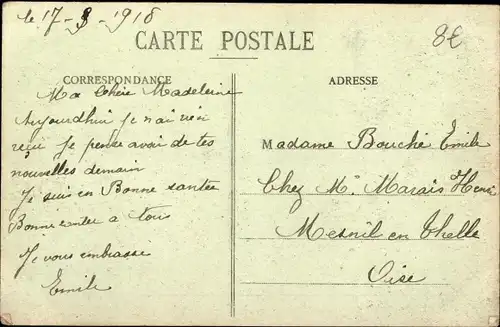 le 17-3-1918
8€
CARTE POSTALE
CORRESPONDANCE
ADRESSE
Ma Chère Madeleine
Aujourdhui je n'ai rien
reçu je pense avoir de tes
nouvelles demain
Je suis en Bonne santée
Bonne santer a tous
Je vous embrasse
Emile
Madame Bouché Emile
Chez Mr. Marais Henri
Mesnil en Thelle
Oise